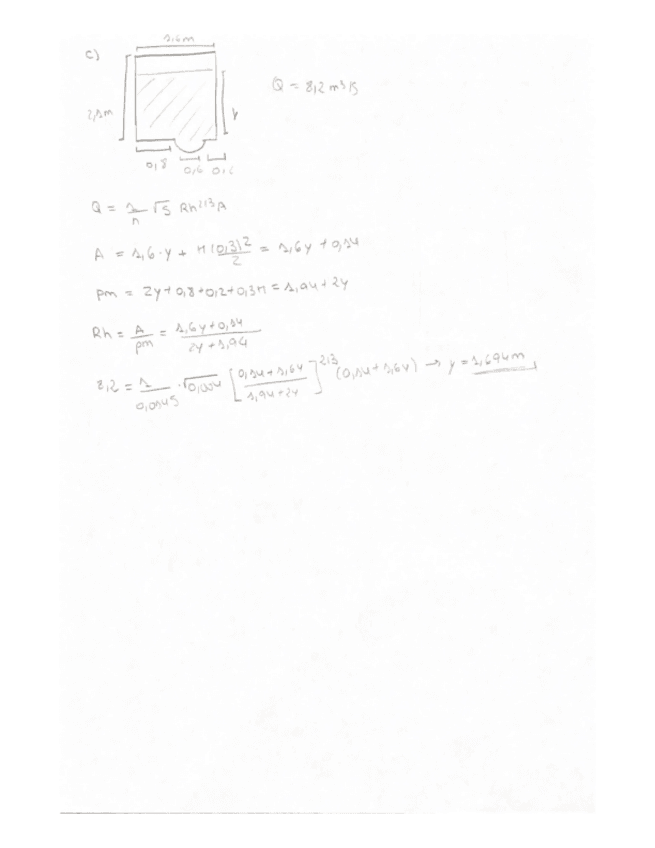 1,6m
c)
Q = 8,2 m³/s
2,1m
y
0,8 0,6 0,2
Q = 1/n √S Rh^2/3 A
A = 1,6·y + π(0,3)²/2 = 1,6y + 0,14
pm = 2y + 0,8 + 0,2 + 0,3π = 1,94 + 2y
Rh = A/pm = 1,6y + 0,14 / 2y + 1,94
8,2 = 1/0,0145 · √0,004 [0,14 + 1,6y / 1,94 + 2y]^2/3 (0,14 + 1,6y) → y = 1,694m